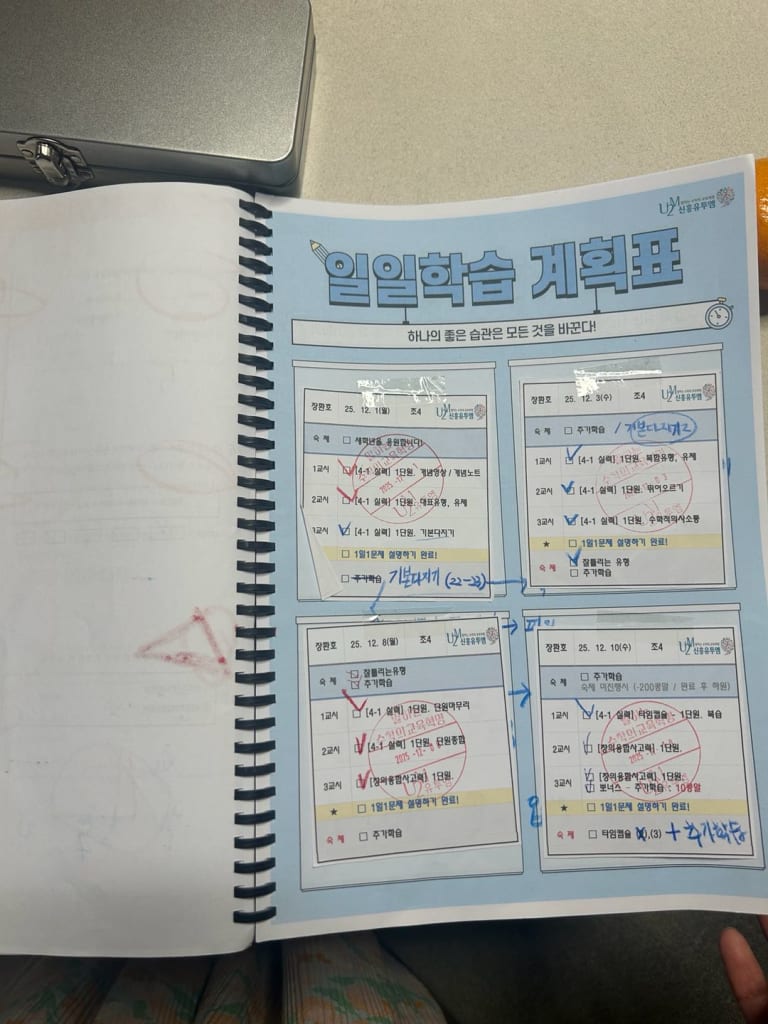 U2M 신흥유투엠
일일학습 계획표
하나의 좋은 습관은 모든 것을 바꾼다!
장환호 25. 12. 1(월) 조4 U2M 신흥유투엠
숙 제 □ 새학년을 응원합니다!
1교시 □ [4-1 실력] 1단원. 개념영상 / 개념노트
2교시 □ [4-1 실력] 1단원. 대표유형, 유제
3교시 □ [4-1 실력] 1단원. 기본다지기
□ 1일1문제 설명하기 완료!
□ 추가학습 기본다지기 (22-23)
장환호 25. 12. 3(수) 조4 U2M 신흥유투엠
숙 제 □ 추가학습 / 기본다지기2
1교시 □ [4-1 실력] 1단원. 복합유형, 유제
2교시 □ [4-1 실력] 1단원. 뛰어오르기
3교시 □ [4-1 실력] 1단원. 수학적의사소통
★ □ 1일1문제 설명하기 완료!
숙 제 □ 잘틀리는 유형
□ 추가학습
장환호 25. 12. 8(월) 조4 U2M 신흥유투엠
숙 제 □ 잘틀리는유형
□ 추가학습
1교시 □ [4-1 실력] 1단원. 단원마무리
2교시 □ [4-1 실력] 1단원. 단원종합
3교시 □ [창의융합사고력] 1단원.
★ □ 1일1문제 설명하기 완료!
숙 제 □ 추가학습
장환호 25. 12. 10(수) 조4 U2M 신흥유투엠
숙 제 □ 추가학습
숙제 미진행시 (-200콩알 / 완료 후 하원)
1교시 □ [4-1 실력] 타임캡슐 1단원 복습
2교시 □ [창의융합사고력] 1단원.
3교시 □ [창의융합사고력] 1단원.
□ 보너스 - 추가학습 : 10콩알
★ □ 1일1문제 설명하기 완료!
숙 제 □ 타임캡슐 ,(3) + 추가학습